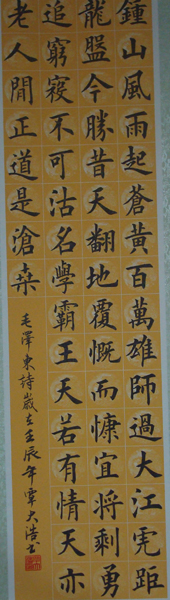 鍾山風雨起蒼黃百萬雄師過大江虎距
龍盤今勝昔天翻地覆慨而慷宜將剩勇
追窮寇不可沽名學霸王天若有情天亦
老人間正道是滄桒
毛澤東詩歲在壬辰年覃大浩書